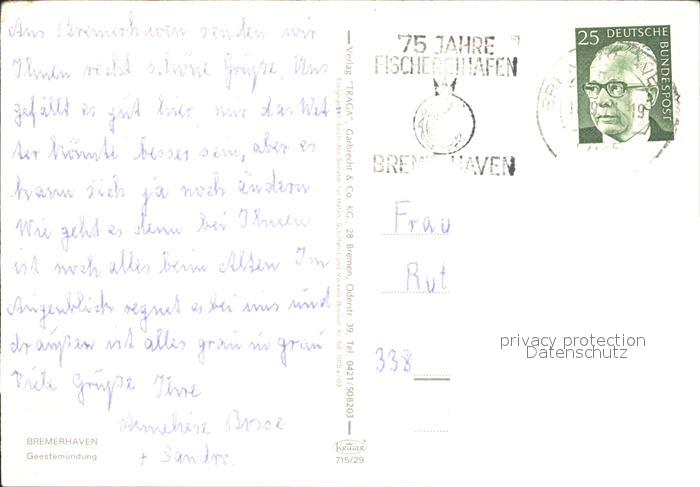 Aus Bremerhaven senden wir
Ihnen recht schöne Grüße. Uns
gefällt es gut hier, nur das Wet
ter könnte besser sein, aber es
kann sich ja noch ändern
Wie geht es denn bei Ihnen
ist noch alles beim Alten Im
Augenblick regnet es bei uns und
draußen ist alles grau in grau
Viele Grüße Ihre
Anneliese
+ Sandra.
BREMERHAVEN
Geestemündung
Verlag "TRAGA", Garbrecht & Co. KG., 28 Bremen, Oderstr. 39, Tel. 0421/508203
KRÜGER
715/29
75 JAHRE
FISCHEREIHAFEN
BREMERHAVEN
25 DEUTSCHE
BUNDESPOST
Frau
Rut
338
privacy protection
Datenschutz